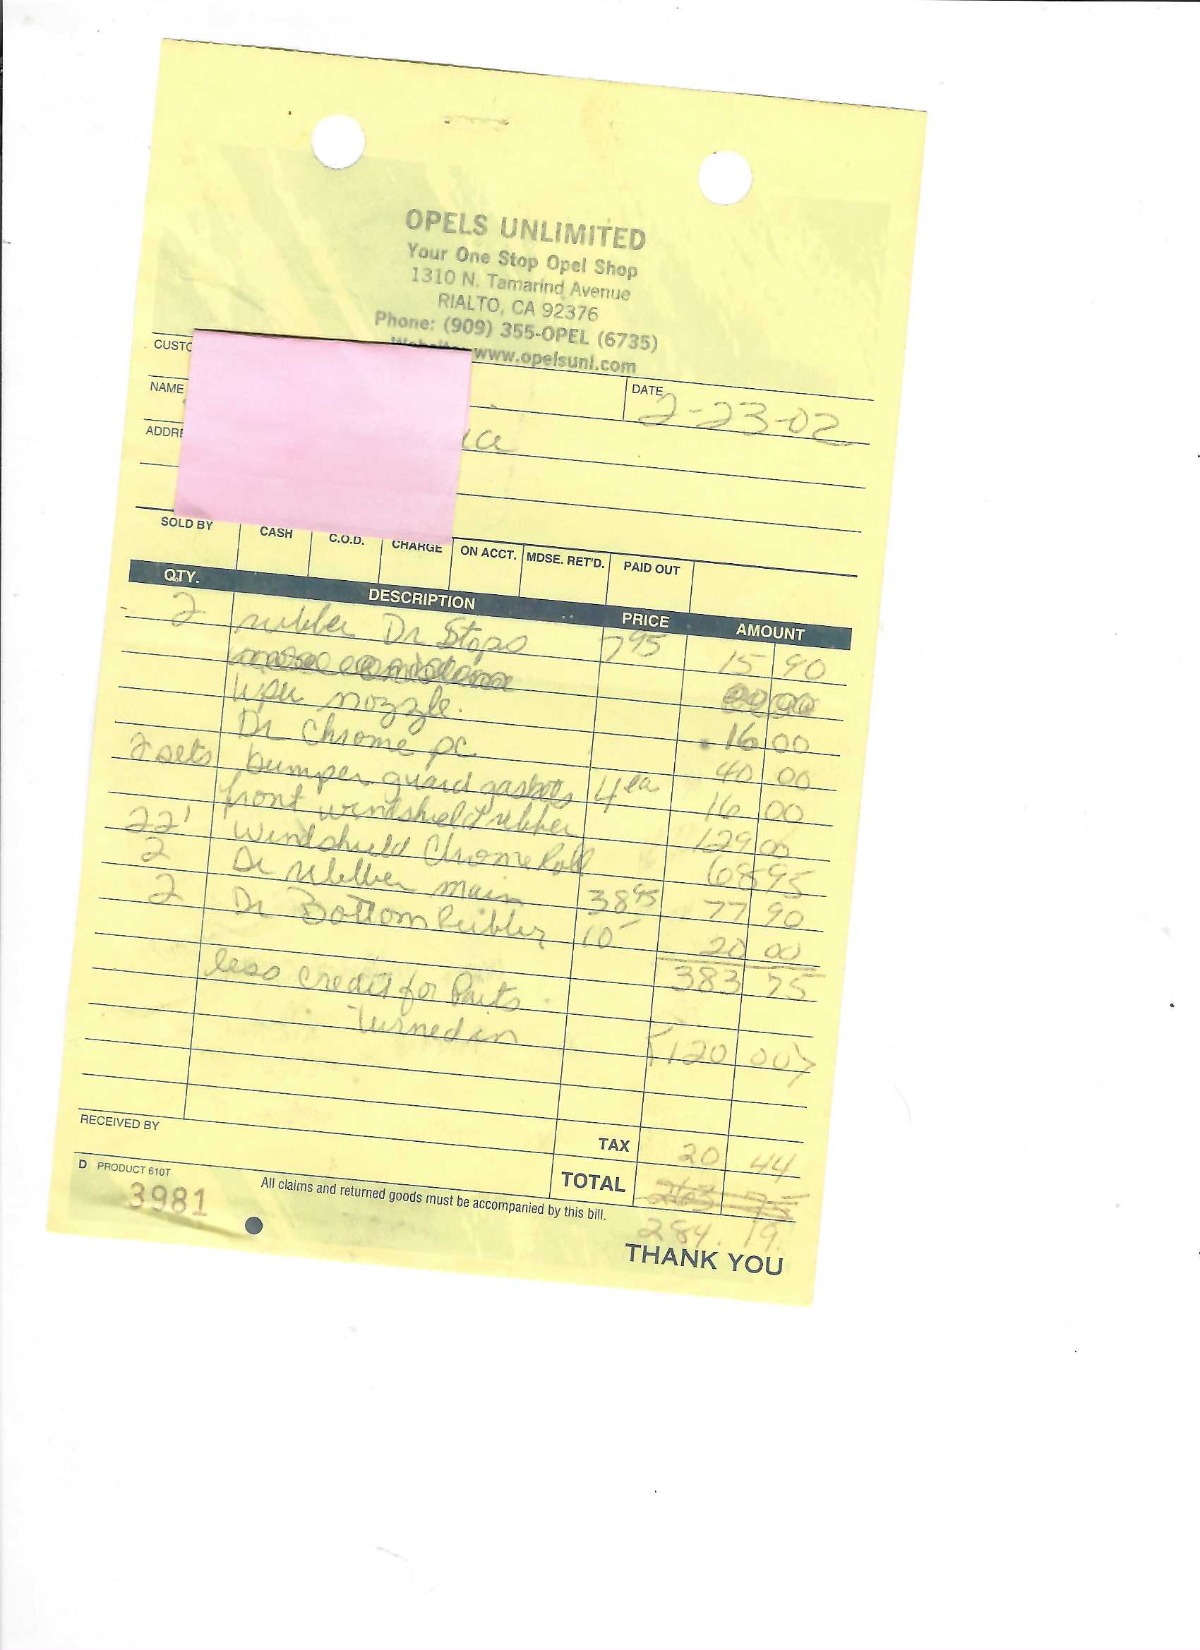 OPELS UNLIMITED
Your One Stop Opel Shop
1310 N. Tamarind Avenue
RIALTO, CA 92376
Phone: (909) 355-OPEL (6735)
www.opelsunl.com
CUSTO
NAME DATE 2-23-02
ADDRE
SOLD BY CASH C.O.D. CHARGE ON ACCT. MDSE. RET'D. PAID OUT
QTY. DESCRIPTION PRICE AMOUNT
2 rubber Dr Stops 7 95 15 90
nozzle. 16 00
Dr Chrome pc 40 00
2 sets bumper guard gaskets 4 ea 16 00
front windshield rubber 129 00
22' Windshield Chrome Roll 68 95
2 Dr rubber main 38 95 77 90
2 Dr Bottom Rubber 10 - 20 00
383 75
less credit for Parts
turned in <120 00>
RECEIVED BY
TAX 20 44
TOTAL 263 75
284.19
D PRODUCT 610T
3981
All claims and returned goods must be accompanied by this bill.
THANK YOU